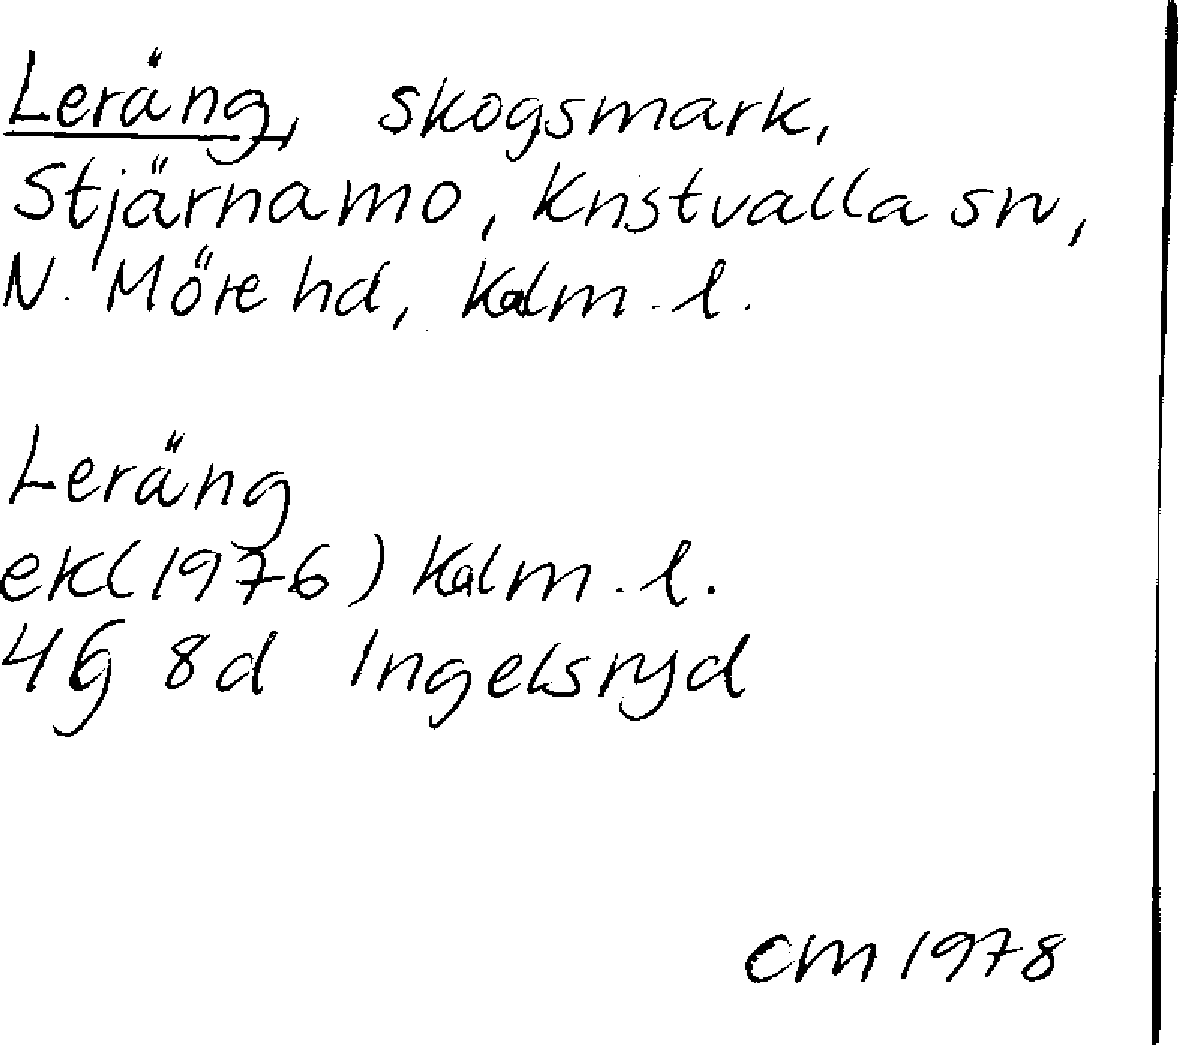 Leräng, skogsmark,
Stjärnamo, Kristvalla sn,
N. Möre hd, Kalm. l.
Leräng
ek (1976) Kalm. l.
4G 8d Ingelsryd
CM 1978